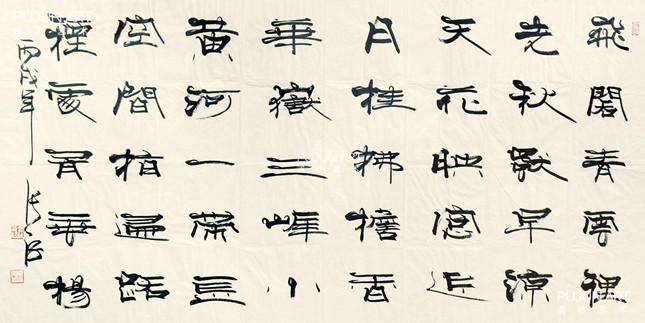 飛閣青雲裡
先秋 早涼
天花映窓近
月桂拂檐香
華嶽三峰小
黃河一帶長
空間指 路
煙處有垂楊
丙戌年